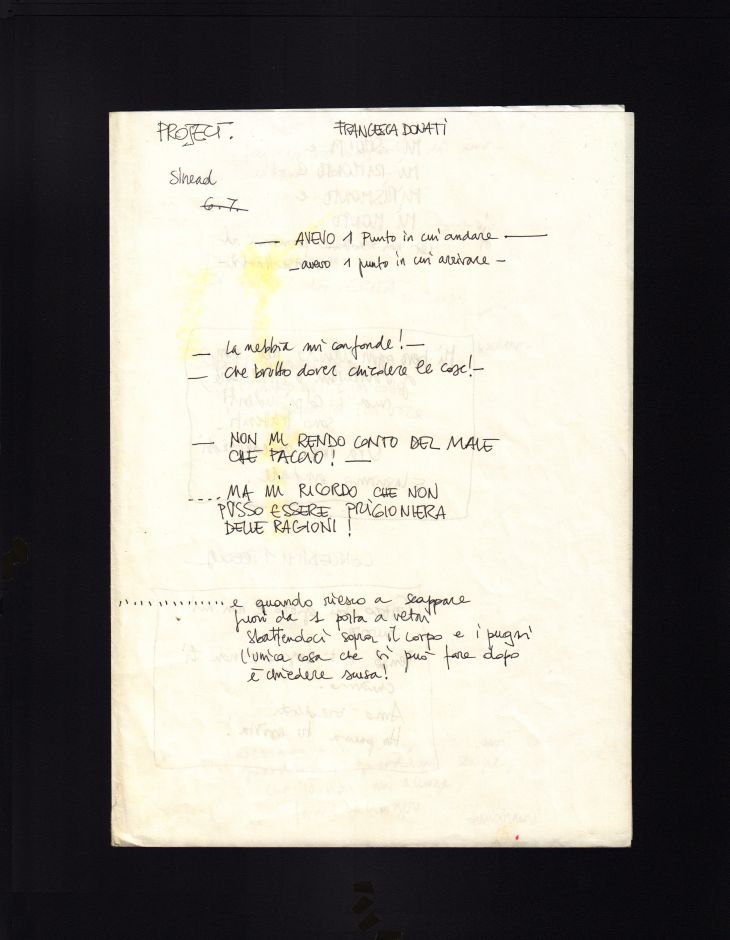 PROJECT.
FRANCESCA DONATI
Sinead
6.7.
— AVEVO 1 Punto in cui andare —
— avevo 1 punto in cui arrivare —
— La nebbia mi confonde! —
— che brutto dover chiedere le cose! —
— NON MI RENDO CONTO DEL MALE
CHE FACCIO! —
.... MA MI RICORDO CHE NON
POSSO ESSERE PRIGIONIERA
DELLE RAGIONI!
............... e quando riesco a scappare
fuori da 1 porta a vetri
sbattendoci sopra il corpo e i pugni
l'unica cosa che si può fare dopo
è chiedere scusa!